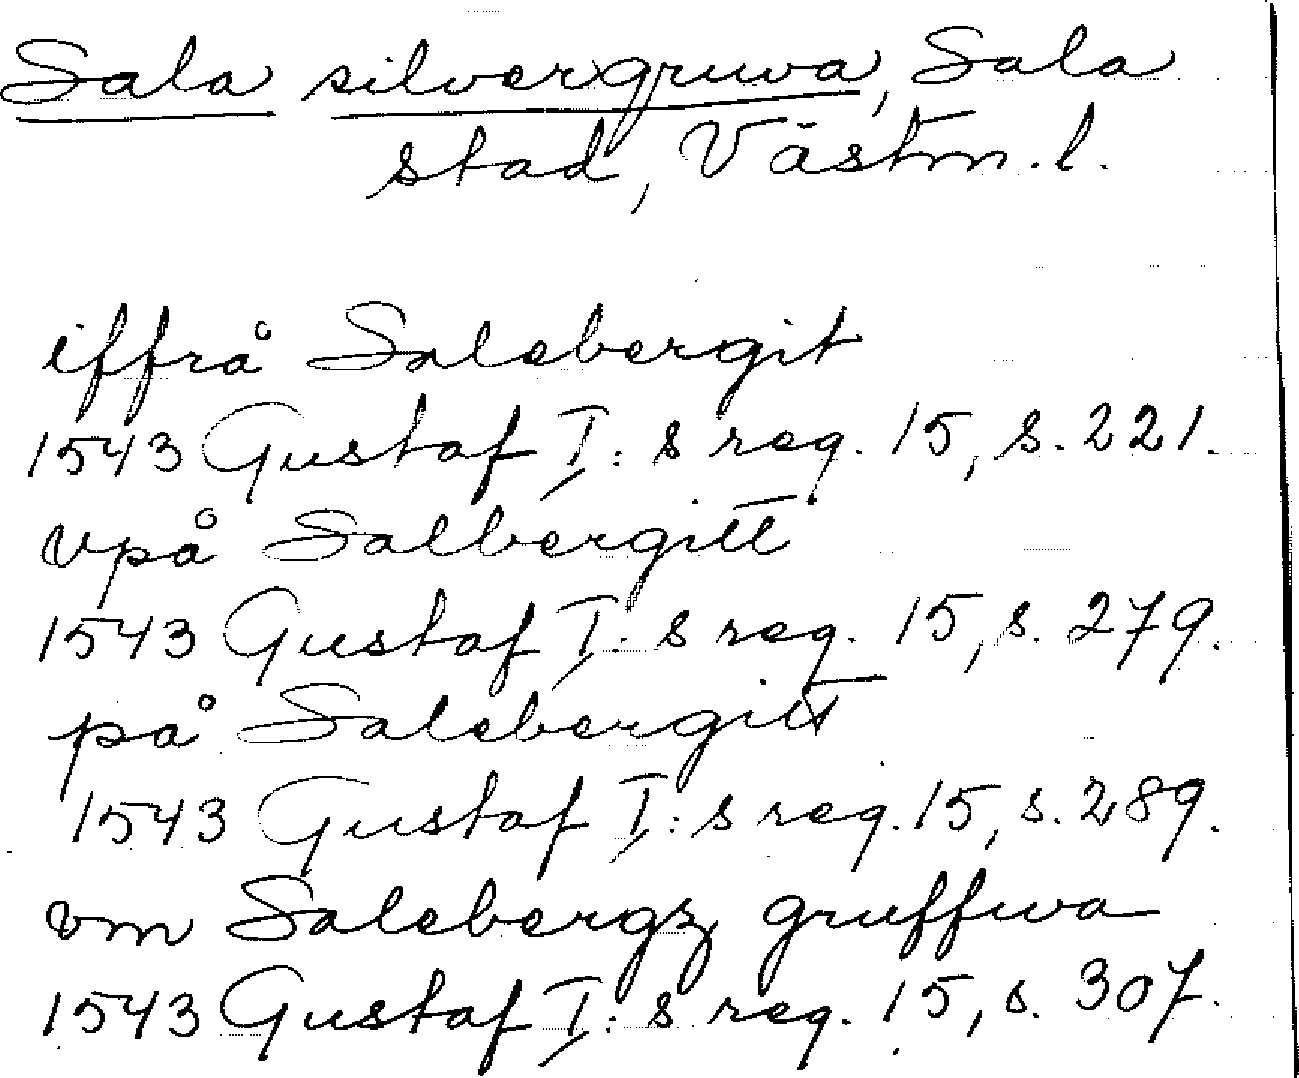 Sala silvergruva, Sala
stad, Västm. l.
iffrå Salebergit
1543 Gustaf I:s reg. 15, s. 221.
vpå Salbergitt
1543 Gustaf I:s reg. 15, s. 279.
på Salebergitt
1543 Gustaf I:s reg. 15, s. 289.
vm Salebergz gruffwa
1543 Gustaf I:s reg. 15, s. 307.